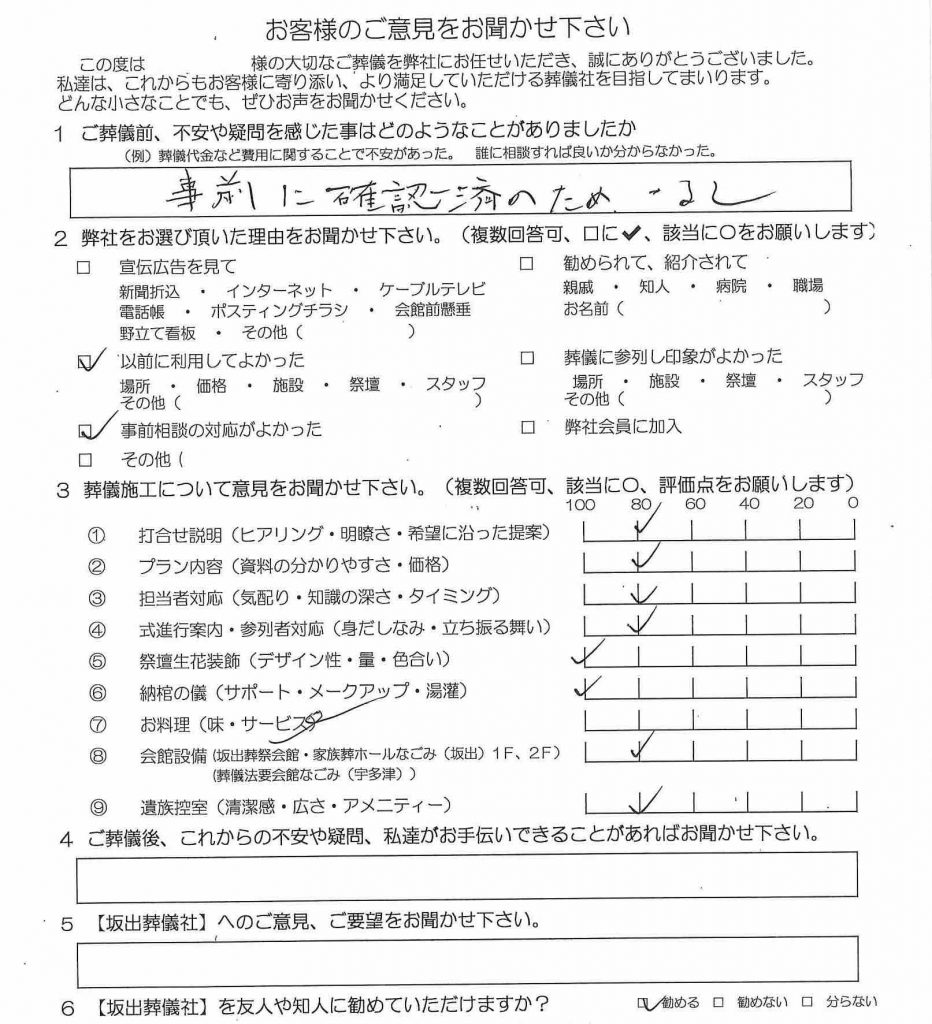 お客様のご意見をお聞かせ下さい
この度は 様の大切なご葬儀を弊社にお任せいただき、誠にありがとうございました。
私達は、これからもお客様に寄り添い、より満足していただける葬儀社を目指してまいります。
どんな小さなことでも、ぜひお声をお聞かせください。
1 ご葬儀前、不安や疑問を感じた事はどのようなことがありましたか
（例）葬儀代金など費用に関することで不安があった。 誰に相談すれば良いか分からなかった。
事前に確認済のため、なし
2 弊社をお選び頂いた理由をお聞かせ下さい。（複数回答可、□に✔、該当に○をお願いします）
□ 宣伝広告を見て
新聞折込 ・ インターネット ・ ケーブルテレビ
電話帳 ・ ポスティングチラシ ・ 会館前懸垂
野立て看板 ・ その他（ ）
□ 勧められて、紹介されて
親戚 ・ 知人 ・ 病院 ・ 職場
お名前（ ）
☑ 以前に利用してよかった
場所 ・ 価格 ・ 施設 ・ 祭壇 ・ スタッフ
その他（ ）
□ 葬儀に参列し印象がよかった
場所 ・ 施設 ・ 祭壇 ・ スタッフ
その他（ ）
☑ 事前相談の対応がよかった
□ 弊社会員に加入
□ その他（
3 葬儀施工について意見をお聞かせ下さい。（複数回答可、該当に○、評価点をお願いします）
100 80 60 40 20 0
① 打合せ説明（ヒアリング・明瞭さ・希望に沿った提案）
② プラン内容（資料の分かりやすさ・価格）
③ 担当者対応（気配り・知識の深さ・タイミング）
④ 式進行案内・参列者対応（身だしなみ・立ち振る舞い）
⑤ 祭壇生花装飾（デザイン性・量・色合い）
⑥ 納棺の儀（サポート・メークアップ・湯灌）
⑦ お料理（味・サービス）
⑧ 会館設備（坂出葬祭会館・家族葬ホールなごみ（坂出）１F、２F）
（葬儀法要会館なごみ（宇多津））
⑨ 遺族控室（清潔感・広さ・アメニティー）
4 ご葬儀後、これからの不安や疑問、私達がお手伝いできることがあればお聞かせ下さい。
5 【坂出葬儀社】へのご意見、ご要望をお聞かせ下さい。
6 【坂出葬儀社】を友人や知人に勧めていただけますか？ ☑勧める □ 勧めない □ 分らない